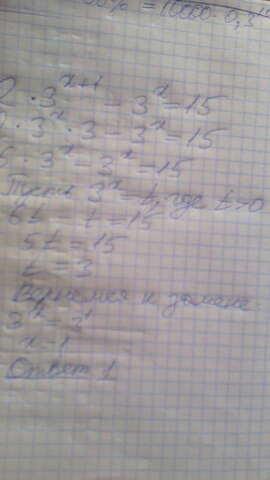 = 10000 · 0,3
2 · 3^(x+1) - 3^x = 15
2 · 3^x · 3 - 3^x = 15
6 · 3^x - 3^x = 15
Пусть 3^x = t, где t>0
6t - t = 15
5t = 15
t = 3
Вернемся к замене
3^x = 3^1
x = 1
Ответ 1